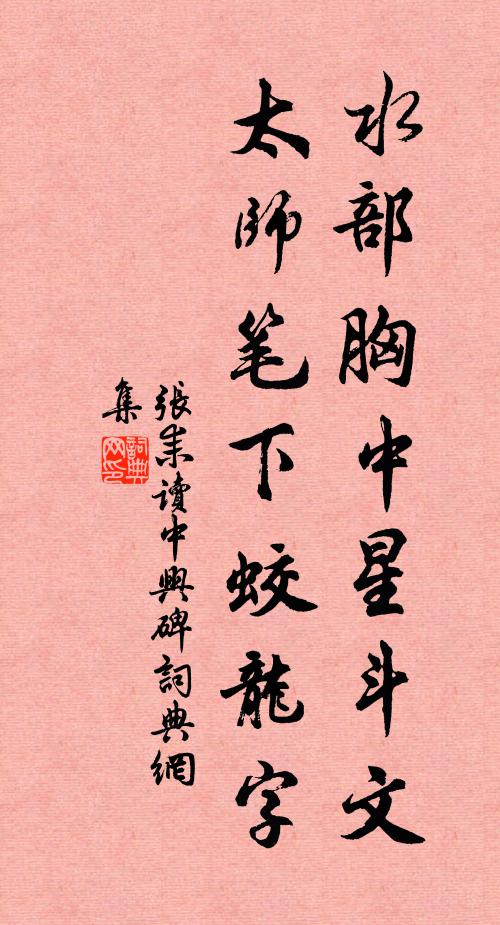 水部胸中星斗文
太師笔下蛟龍字
張耒讀中興碑詞典網
集
詞典
网印